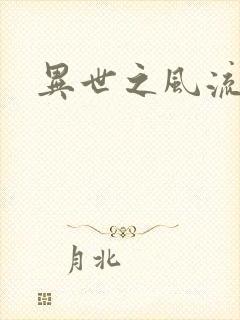 異世之風流
月北